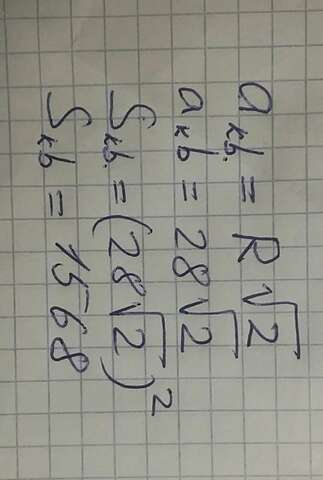 a кв. = R√2
a кв = 28√2
S кв. = (28√2)²
S кв = 1568